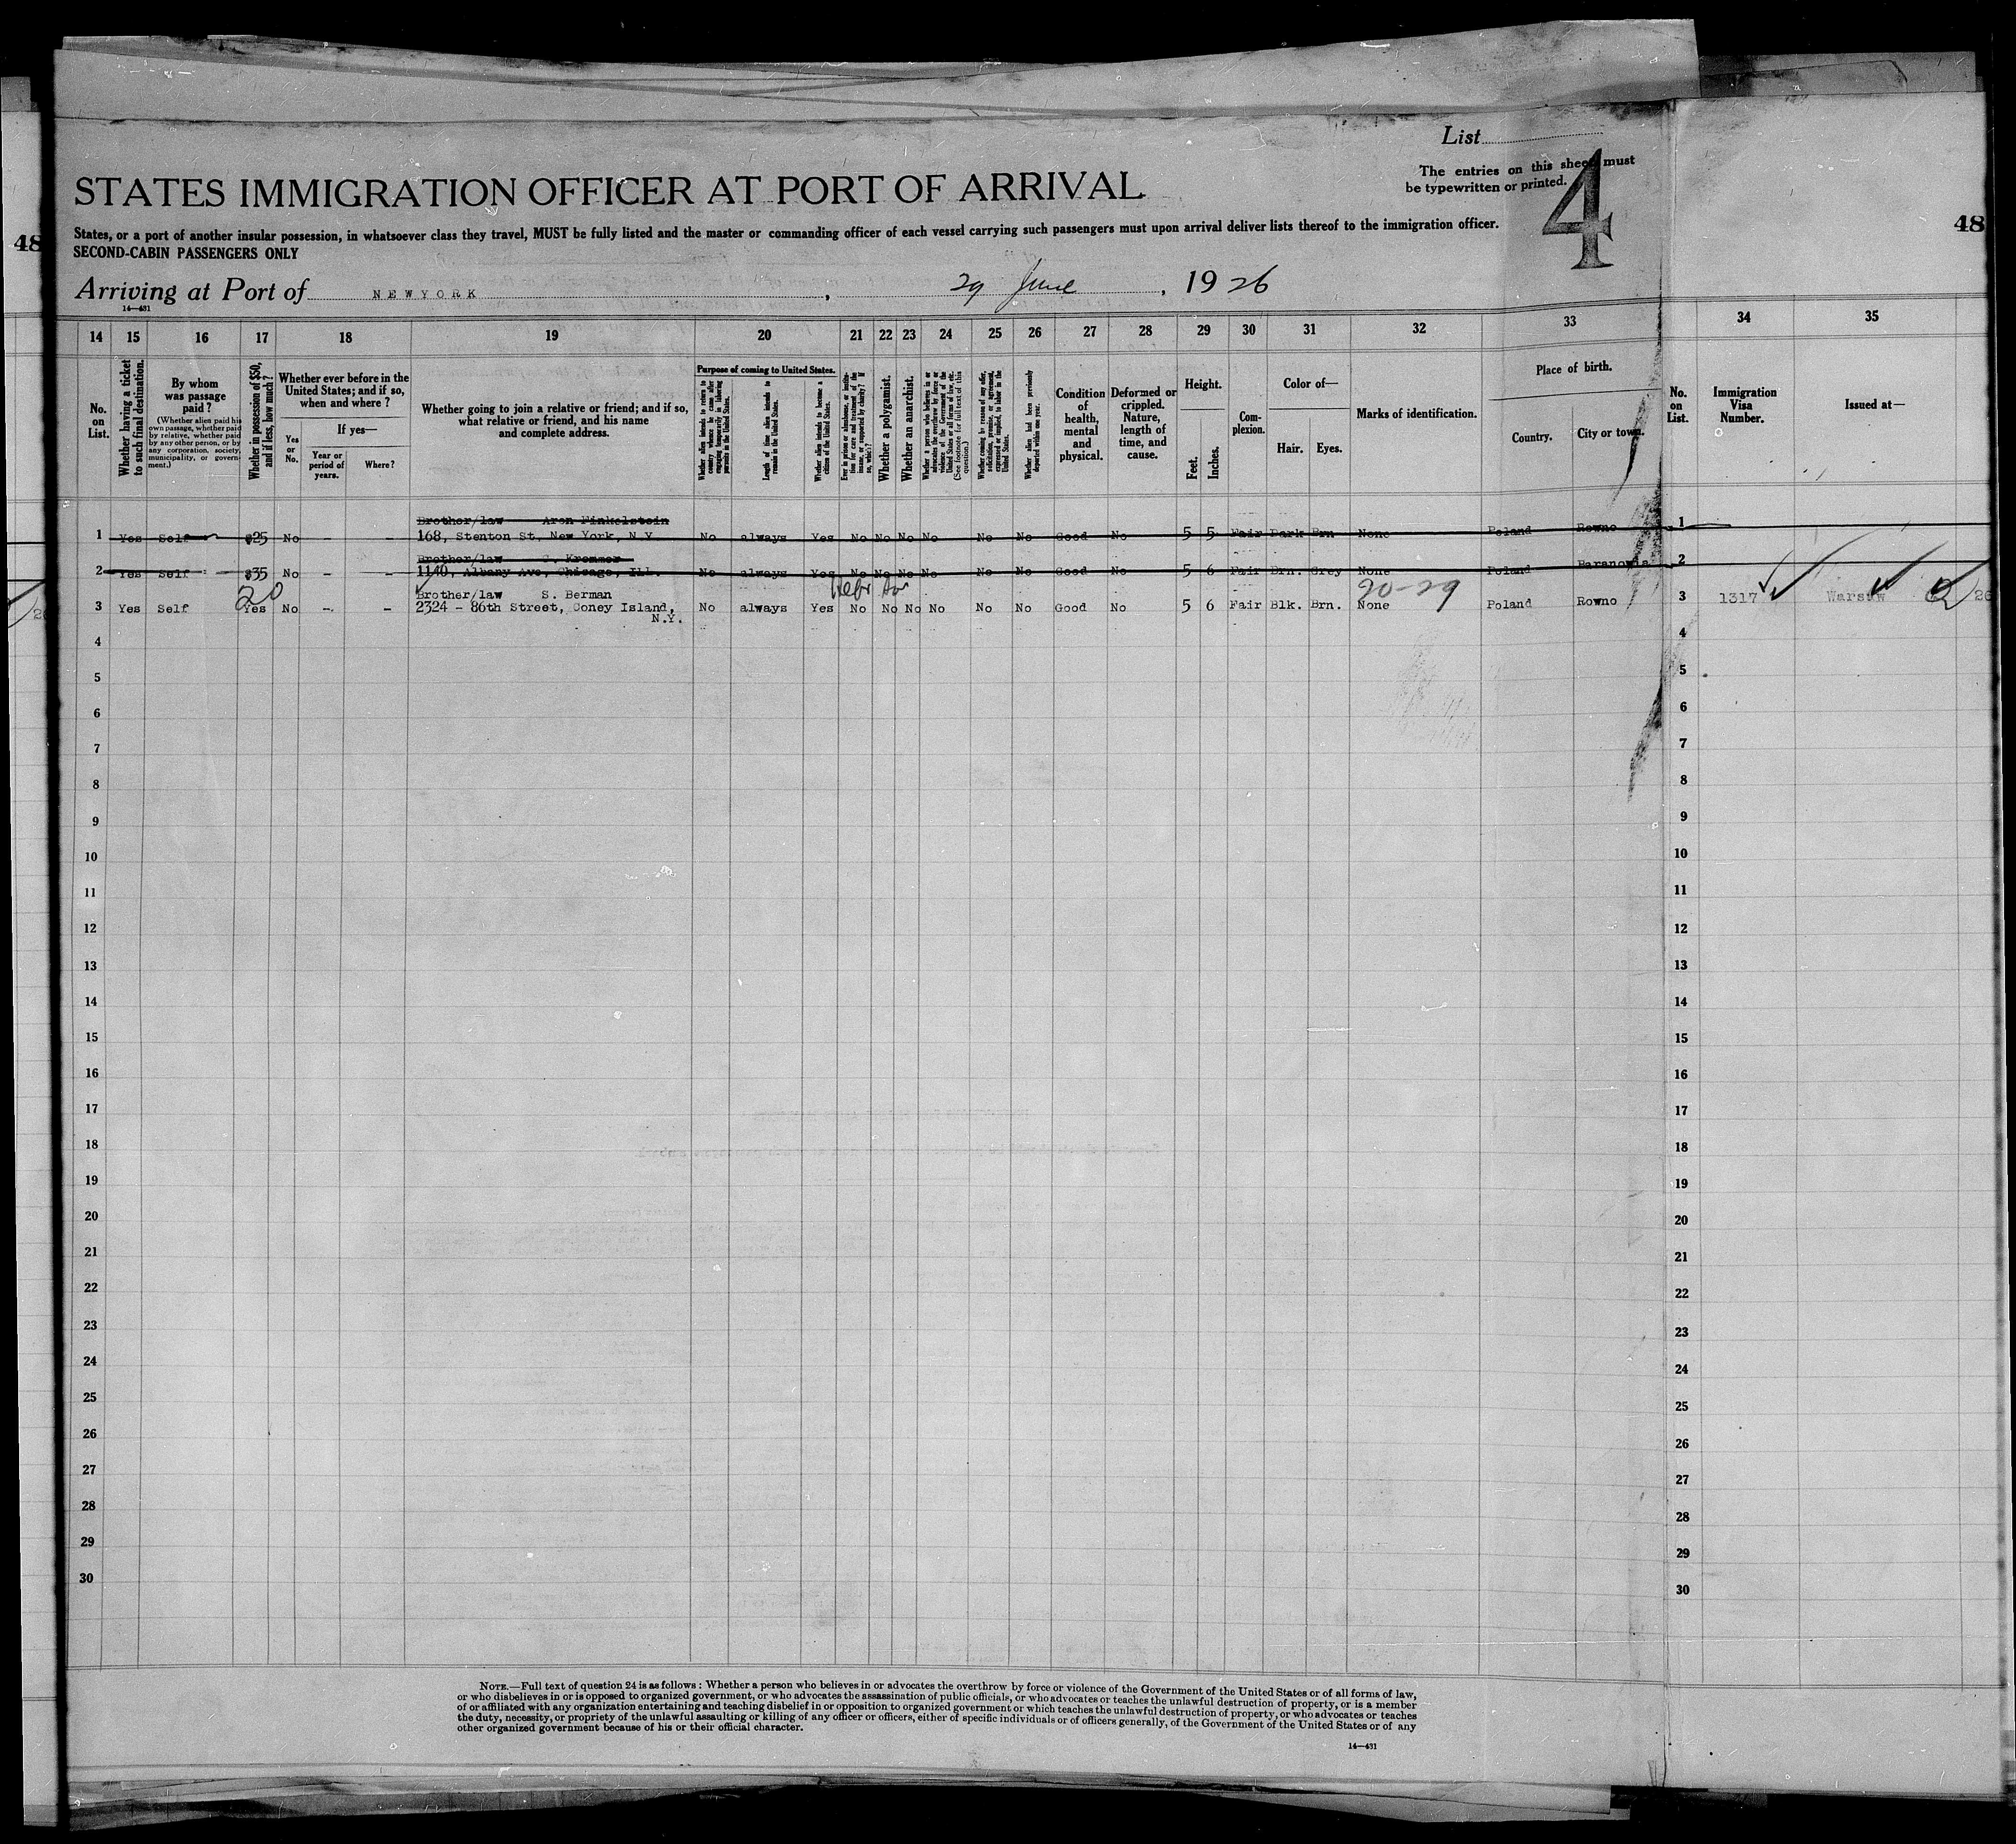 List
The entries on this sheet must
be typewritten or printed.
4
STATES IMMIGRATION OFFICER AT PORT OF ARRIVAL
States, or a port of another insular possession, in whatsoever class they travel, MUST be fully listed and the master or commanding officer of each vessel carrying such passengers must upon arrival deliver lists thereof to the immigration officer.
SECOND-CABIN PASSENGERS ONLY
48
48
Arriving at Port of NEWYORK, 29 June, 1926
14—431
14 15 16 17 18 19 20 21 22 23 24 25 26 27 28 29 30 31 32 33 34 35
No. on List.
Whether having a ticket to such final destination.
By whom was passage paid?
(Whether alien paid his own passage, whether paid by relative, whether paid by any other person, or by any corporation, society, municipality, or government.)
Whether in possession of $50, and if less, how much?
Whether ever before in the United States; and if so, when and where?
Yes or No.
If yes—
Year or period of years.
Where?
Whether going to join a relative or friend; and if so, what relative or friend, and his name and complete address.
Purpose of coming to United States.
Whether alien intends to return to country whence he came after engaging temporarily in laboring pursuits in the United States.
Length of time alien intends to remain in the United States.
Whether alien intends to become a citizen of the United States.
Ever in prison or almshouse, or institution for care and treatment of the insane, or supported by charity? If so, which?
Whether a polygamist.
Whether an anarchist.
Whether a person who believes in or advocates the overthrow by force or violence of the Government of the United States or all forms of law, etc. (See footnote for full text of this question.)
Whether coming by reason of any offer, solicitation, promise, or agreement, expressed or implied, to labor in the United States.
Whether alien had been previously deported within one year.
Condition of health, mental and physical.
Deformed or crippled. Nature, length of time, and cause.
Height.
Feet.
Inches.
Complexion.
Color of—
Hair. Eyes.
Marks of identification.
Place of birth.
Country.
City or town.
No. on List.
Immigration Visa Number.
Issued at—
Brother/law Aron Finkelstein
1 Yes Self $25 No - - 168, Stenton St, New York, N.Y. No always Yes No No No No No No Good No 5 5 Fair Dark Brn None Poland Rowno 1
Brother/law Kremmer
2 Yes Self $35 No - - 1140, Albany Ave, Chicago, Ill. No always Yes No No No No No No Good No 5 6 Fair Brn. Grey None Poland 2
20 Hebr 20-29
Brother/law S. Berman
3 Yes Self Yes No - - 2324 - 86th Street, Coney Island, No always Yes No No No No No No Good No 5 6 Fair Blk. Brn. None Poland Rowno 3 1317 Warsaw
N.Y.
4 4
5 5
6 6
7 7
8 8
9 9
10 10
11 11
12 12
13 13
14 14
15 15
16 16
17 17
18 18
19 19
20 20
21 21
22 22
23 23
24 24
25 25
26 26
27 27
28 28
29 29
30 30
NOTE.—Full text of question 24 is as follows: Whether a person who believes in or advocates the overthrow by force or violence of the Government of the United States or of all forms of law,
or who disbelieves in or is opposed to organized government, or who advocates the assassination of public officials, or who advocates or teaches the unlawful destruction of property, or is a member
of or affiliated with any organization entertaining and teaching disbelief in or opposition to organized government or which teaches the unlawful destruction of property, or who advocates or teaches
the duty, necessity, or propriety of the unlawful assaulting or killing of any officer or officers, either of specific individuals or of officers generally, of the Government of the United States or of any
other organized government because of his or their official character.
14—431